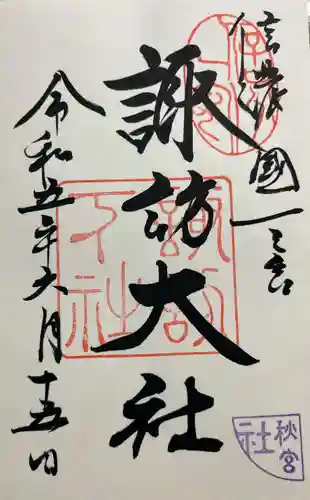 信濃國一之宮
諏訪大社
令和五年六月十五日
諏訪下社
秋宮
社